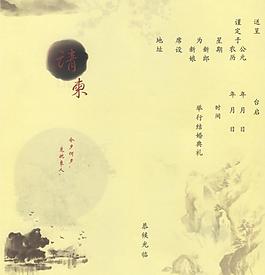 送呈
台启
谨定于公元
年
月
日
农历
年
月
日
星期
时间
为新郎
新娘
举行结婚典礼
席设
地址
恭候光临
请柬
今夕何夕,
见此良人。